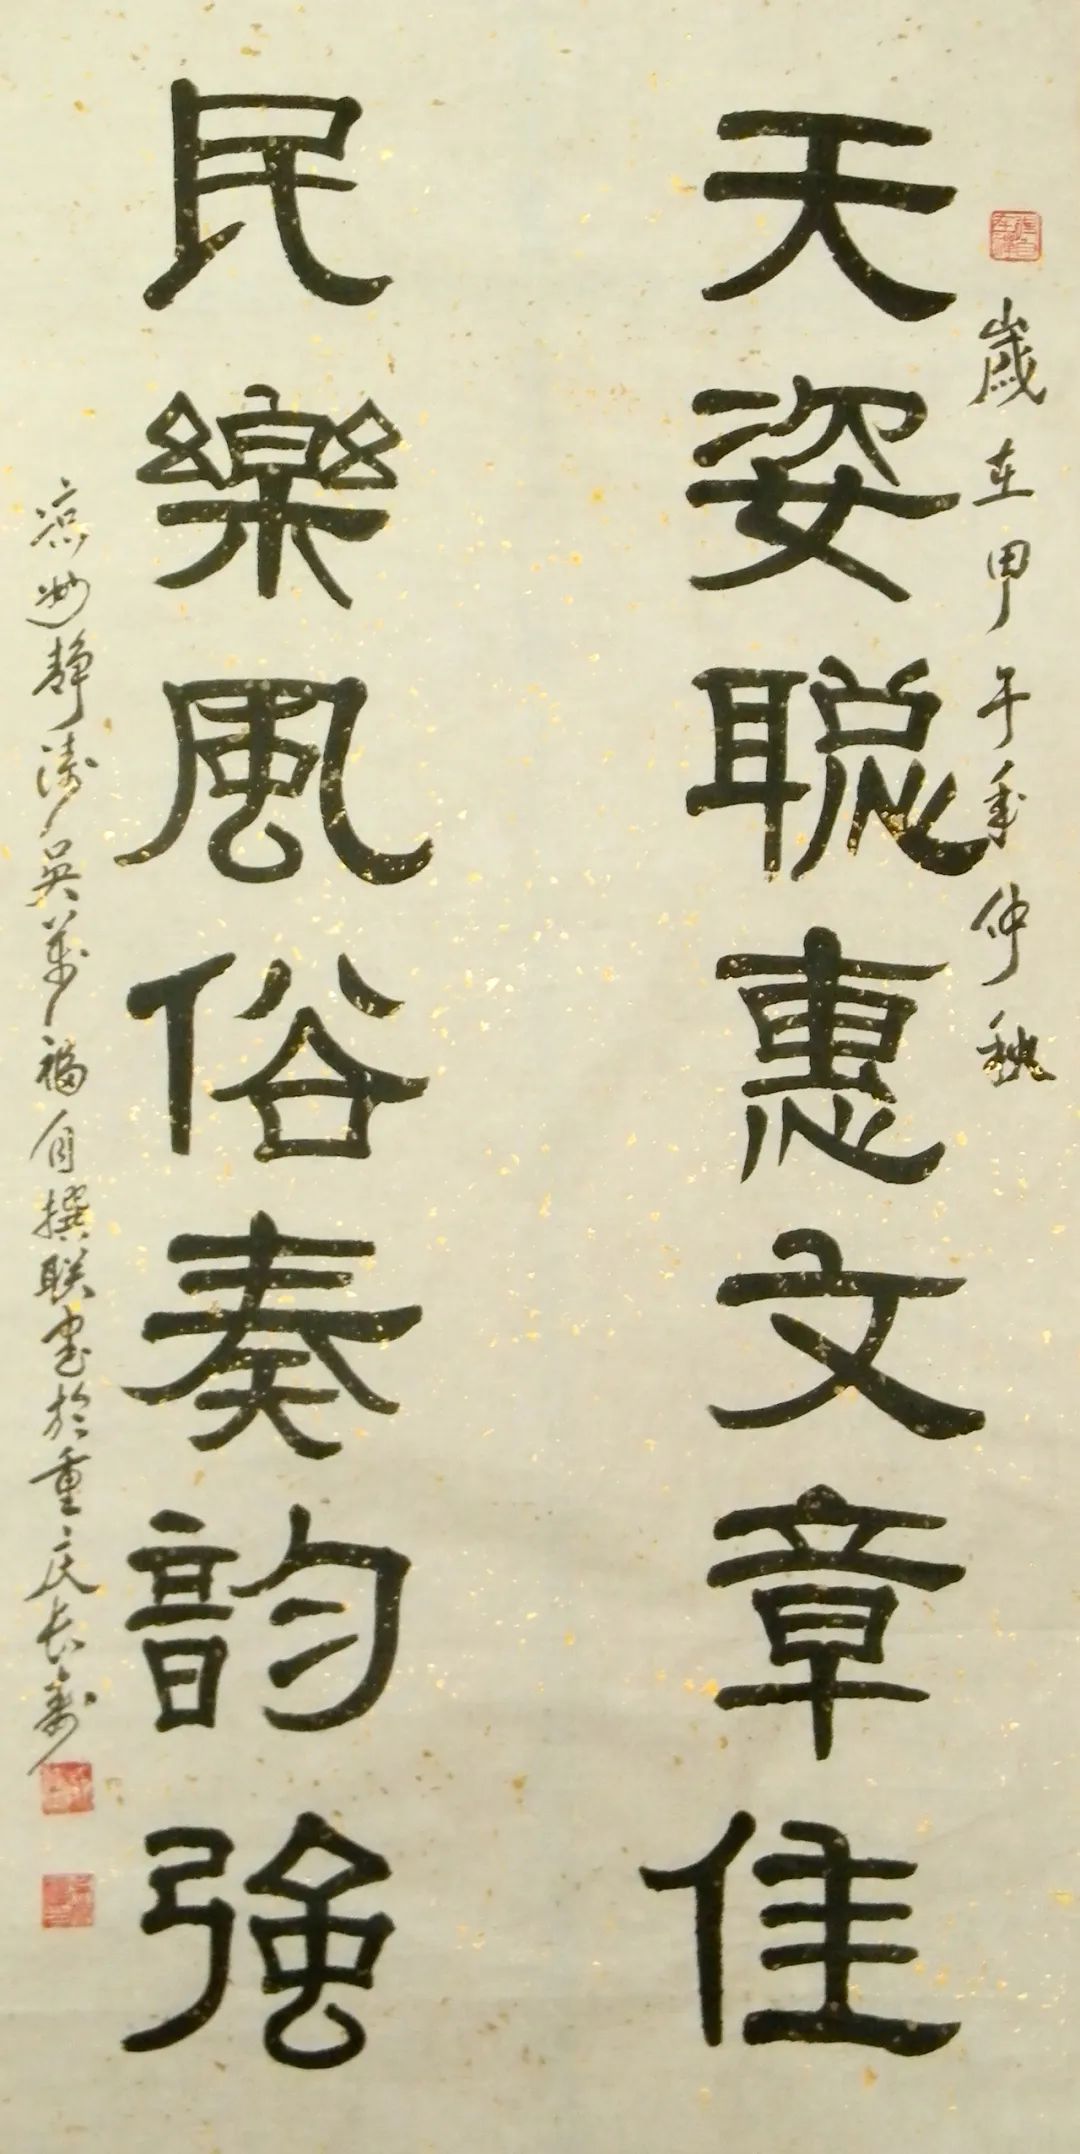 歲在甲午年仲秋
天姿聪惠文章佳
民樂風俗奏韵強
静涛吴萬福自撰联书於重庆长寿